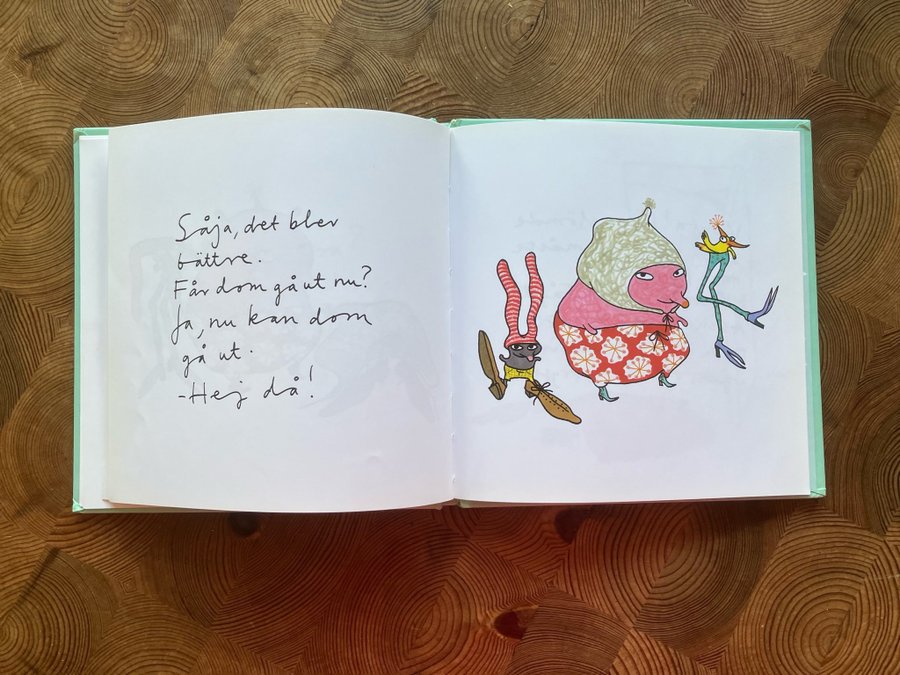 Såja, det blev
bättre.
Får dom gå ut nu?
Ja, nu kan dom
gå ut.
-Hej då!